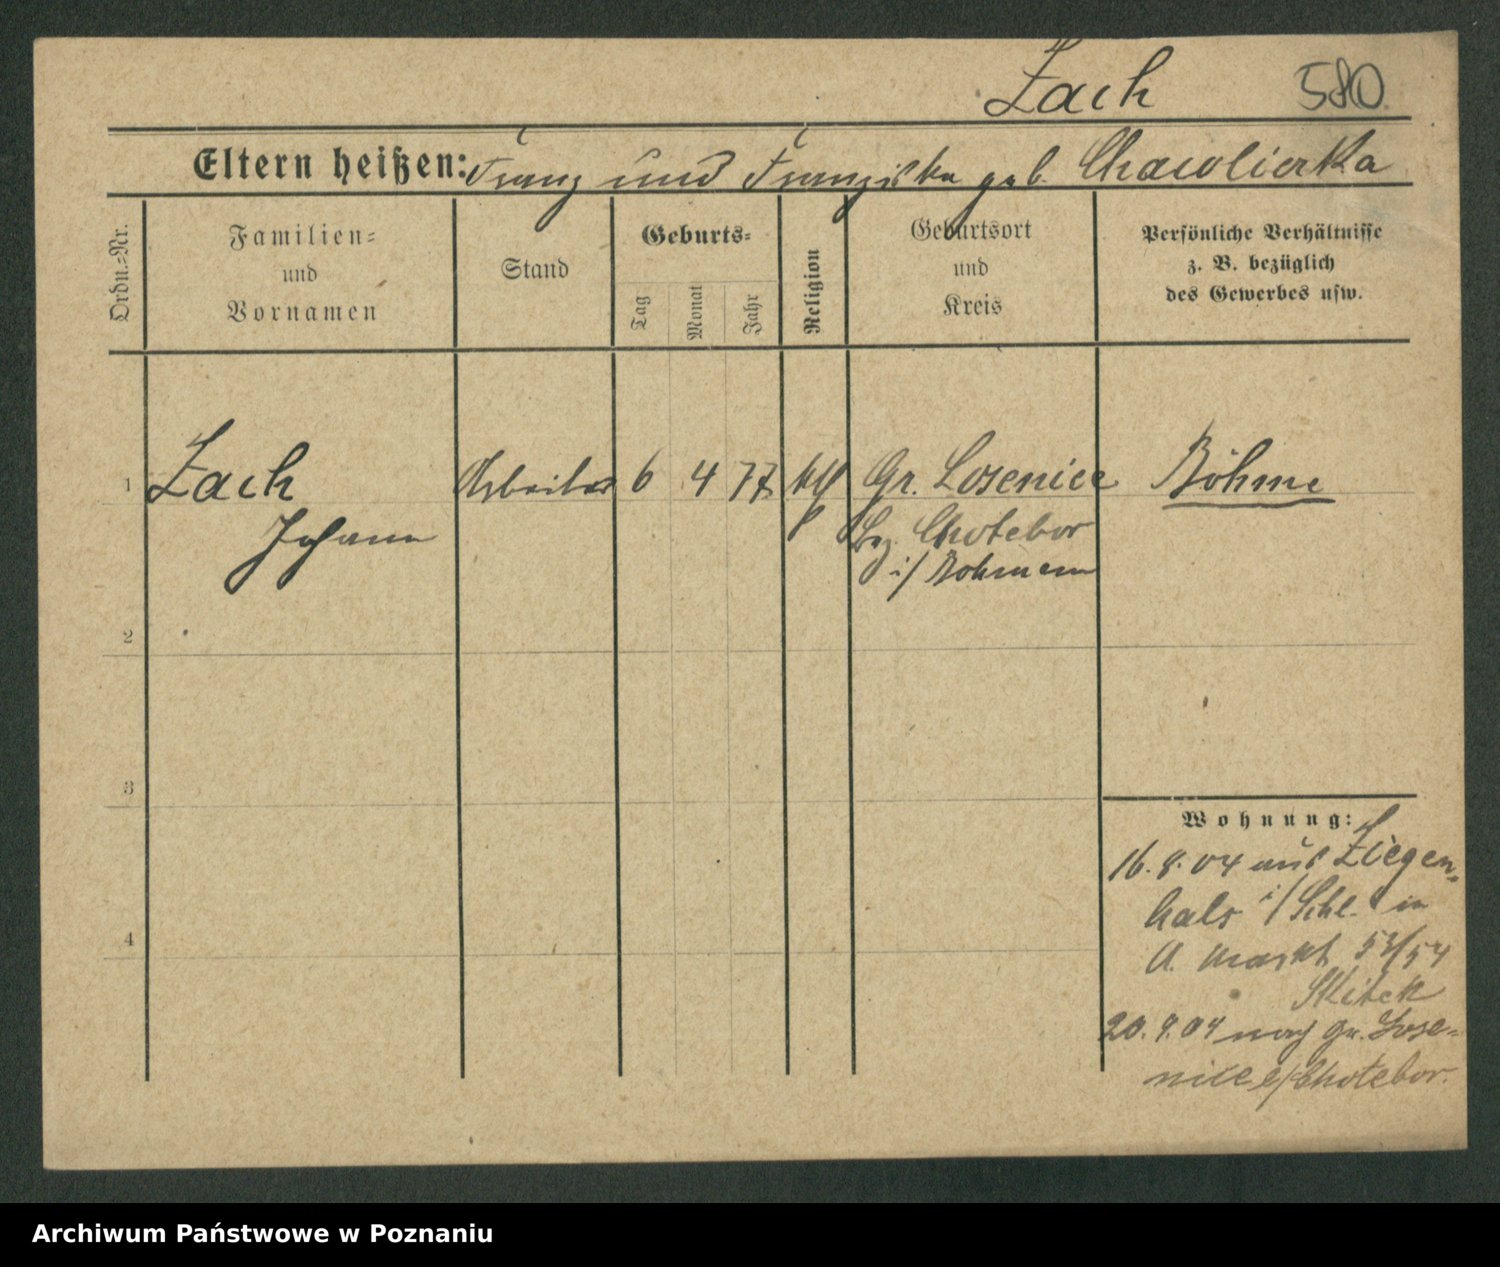 Zach 580
Eltern heißen: Franz und Franziska geb. Chawlierka
Ordn.=Nr.
Familien=
und
Vornamen
Stand
Geburts=
Tag
Monat
Jahr
Religion
Geburtsort
und
Kreis
Persönliche Verhältnisse
z. B. bezüglich
des Gewerbes usw.
1 Zach Arbeiter 6 4 77 kth Gr. Losenice Böhme
Johann Bez. Chotebor
i/ Böhmen
2
3
Wohnung:
16.8.04 aus Ziegen=
hals i/Schl. in
A. Markt 53/54
Skitek
4
20.9.04 nach Gr. Lose=
nice e/Chotebor.
Archiwum Państwowe w Poznaniu